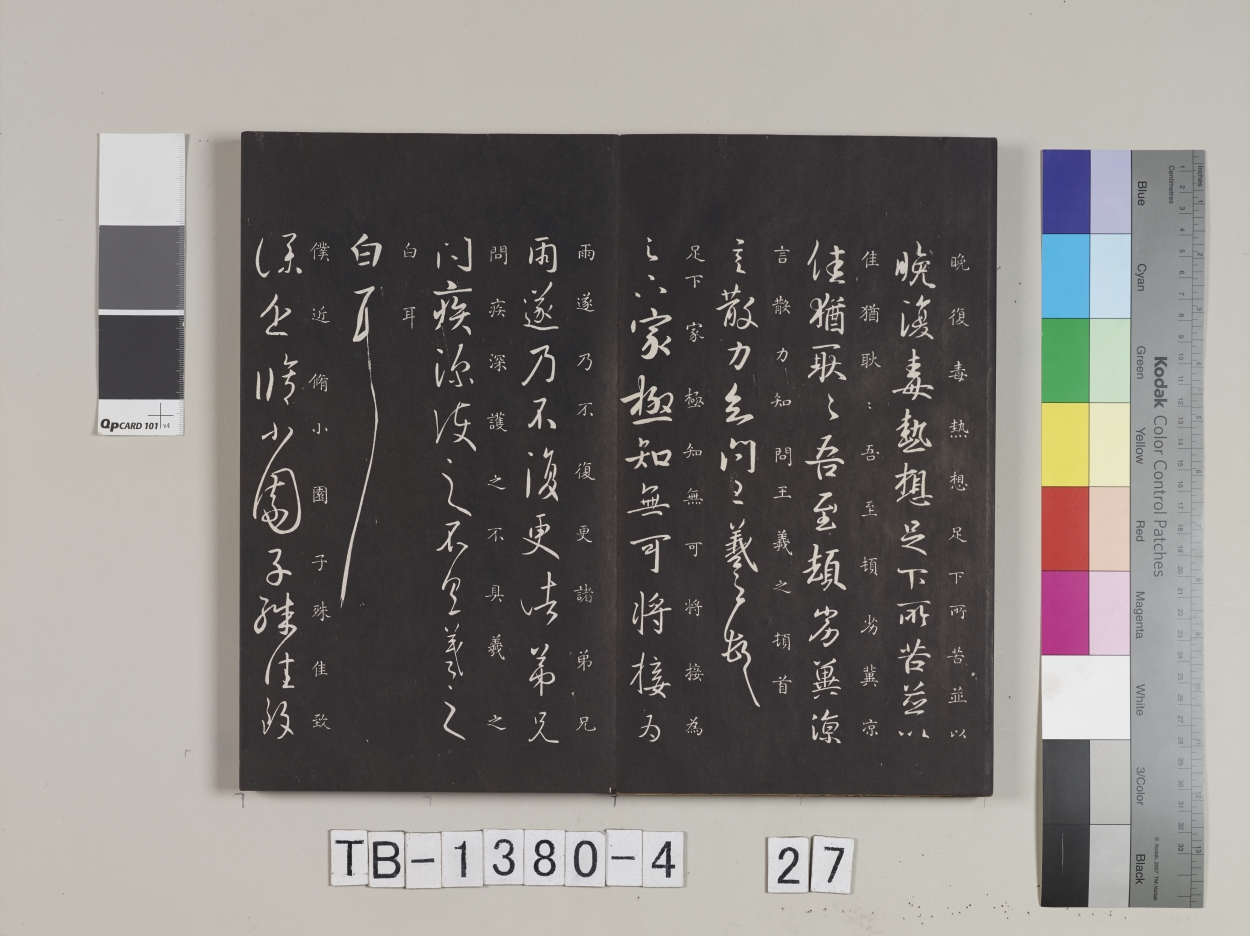 晚復毒熱想足下所苦並以
晚復毒熱想足下所苦並以
佳猶耿〻吾至頓劣冀涼
佳猶耿〻吾至頓劣冀凉
言散力知問王羲之頓首
言散力知問王羲之頓首
足下家極知無可將接為
足下家極知無可將接為
雨遂乃不復更諸弟兄
雨遂乃不復更諸弟兄
問疾深護之不具羲之
問疾深護之不具羲之
白耳
白耳
僕近脩小園子殊佳致
僕近脩小園子殊佳致
TB-1380-4
27
QPCARD 101 v4
Kodak Color Control Patches
Blue
Cyan
Green
Yellow
Red
Magenta
White
3/Color
Black
Inches
Centimetres